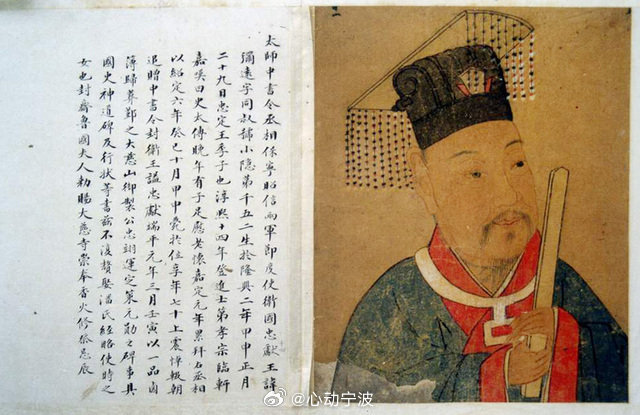 太師中書令丞相保寧昭信兩軍節度使衛國忠獻王諱
彌遠字同叔號小隱第千五二生於隆興二年甲申正月
二十九日忠定王季子也淳熙十四年登進士第孝宗臨軒
嘉嘆曰史太傅晚年有子足慰老懷嘉定元年累拜右丞相
以紹定六年癸巳十月甲申薨於位享年七十上震悼輟朝
追贈中書令封衛王謚忠獻端平元年三月壬寅以一品鹵
簿歸葬鄞之大慈山御製公忠翊運定策元勛之碑事具
國史神道碑及行狀等書茲不復贅娶潘氏經略使時之
女也封齊魯國夫人勅賜大慈寺崇奉香火修祭忌辰
@心动宁波